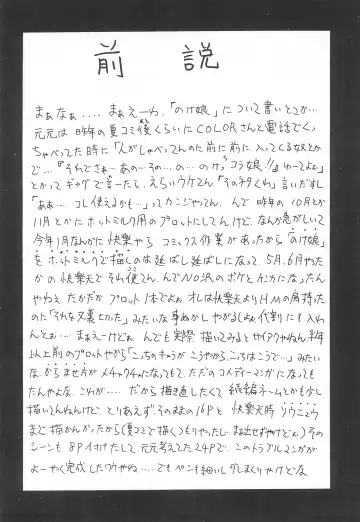 前説
まぁなぁ....まぁえーわ、「のけ娘」について書いとこか…
元元は昨年の夏コミ後くらいにCOLORさんと電話でくっ
ちゃべってた時に「人がしゃべってんの前に前に入ってくる奴とか
で…『それでさぁ…あの…その…の…のけっコラ娘!!』ゆーてよぉ」
とかってギャグで言ーたら、えらいウケてん「そのネタくれ」言いだすし
「ああ…コレ使えるかも…」ってカンジやってん、んで昨年の10月とか
11月とかにホットミルク用のプロットにしてんけど、なんか急がしいて
今年1月なんかに快楽やらコミックス作業があったから「のけ娘」
をホットミルクで描くのは延ばし延ばしになって、5月、6月やた
かの快楽天でそれ使てん、んでNO沢のボケとケンカになったん
やわぇ、たかだかプロット1本でよぉ、オレは快楽天よりHMの肩持た
のに「それを又裏切った」みたいな事ぬかしやがるしよぉ代割りにも入れ
んとぉ…まぁえーけどぉ、んでも実際描いてみるとサイアクやねん、半年
以上前のプロットやから「こっちのキャラがこうやからこっちはこうで…」みたい
な、からませ方がメチャクチャになってもて、ただのコメディーマンガになっても
たんやよな、これが……だから描き直したくて続編ネームとかも少し
描いてんねんけど、とりあえず、そのままの16Pと快楽天時
まで描かんかったから(夏コミで描くつもりやったし…まぁ出せずやけどぉ)その
シーンも8P付けたして、元元考えてた24Pで、このトラブルマンガが
よーやく完成したワケやね….でもペンも細いしゲしまくりやけどな